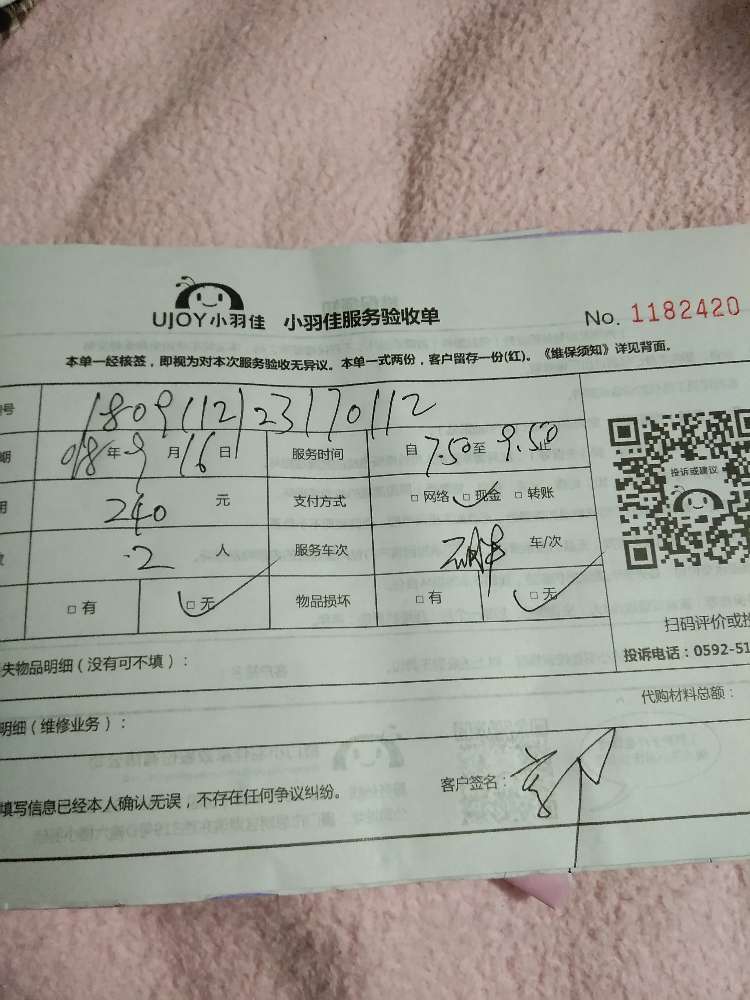 UJOY小羽佳 小羽佳服务验收单 No. 1182420
本单一经核签，即视为对本次服务验收无异议。本单一式两份，客户留存一份(红)。《维保须知》详见背面。
号 1809112123170112
期 018年9月16日 服务时间 自7.50至9.50止
用 240元 支付方式 □网络 □现金 □转账
数 2人 服务车次 车/次
□有 □无 物品损坏 □有 □无
投诉或建议
扫码评价或投
失物品明细（没有可不填）： 投诉电话：0592-51
代购材料总额：
明细（维修业务）：
填写信息已经本人确认无误，不存在任何争议纠纷。 客户签名：